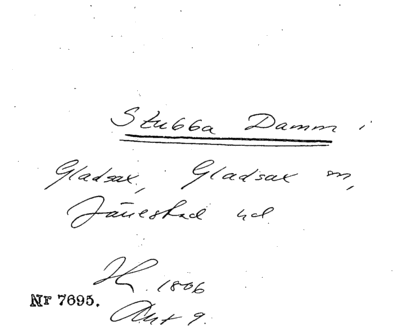 Stubba Damm i
Gladsax, Gladsax sn,
Järrestad hd.
1806
Akt 9.
Nr 7695.